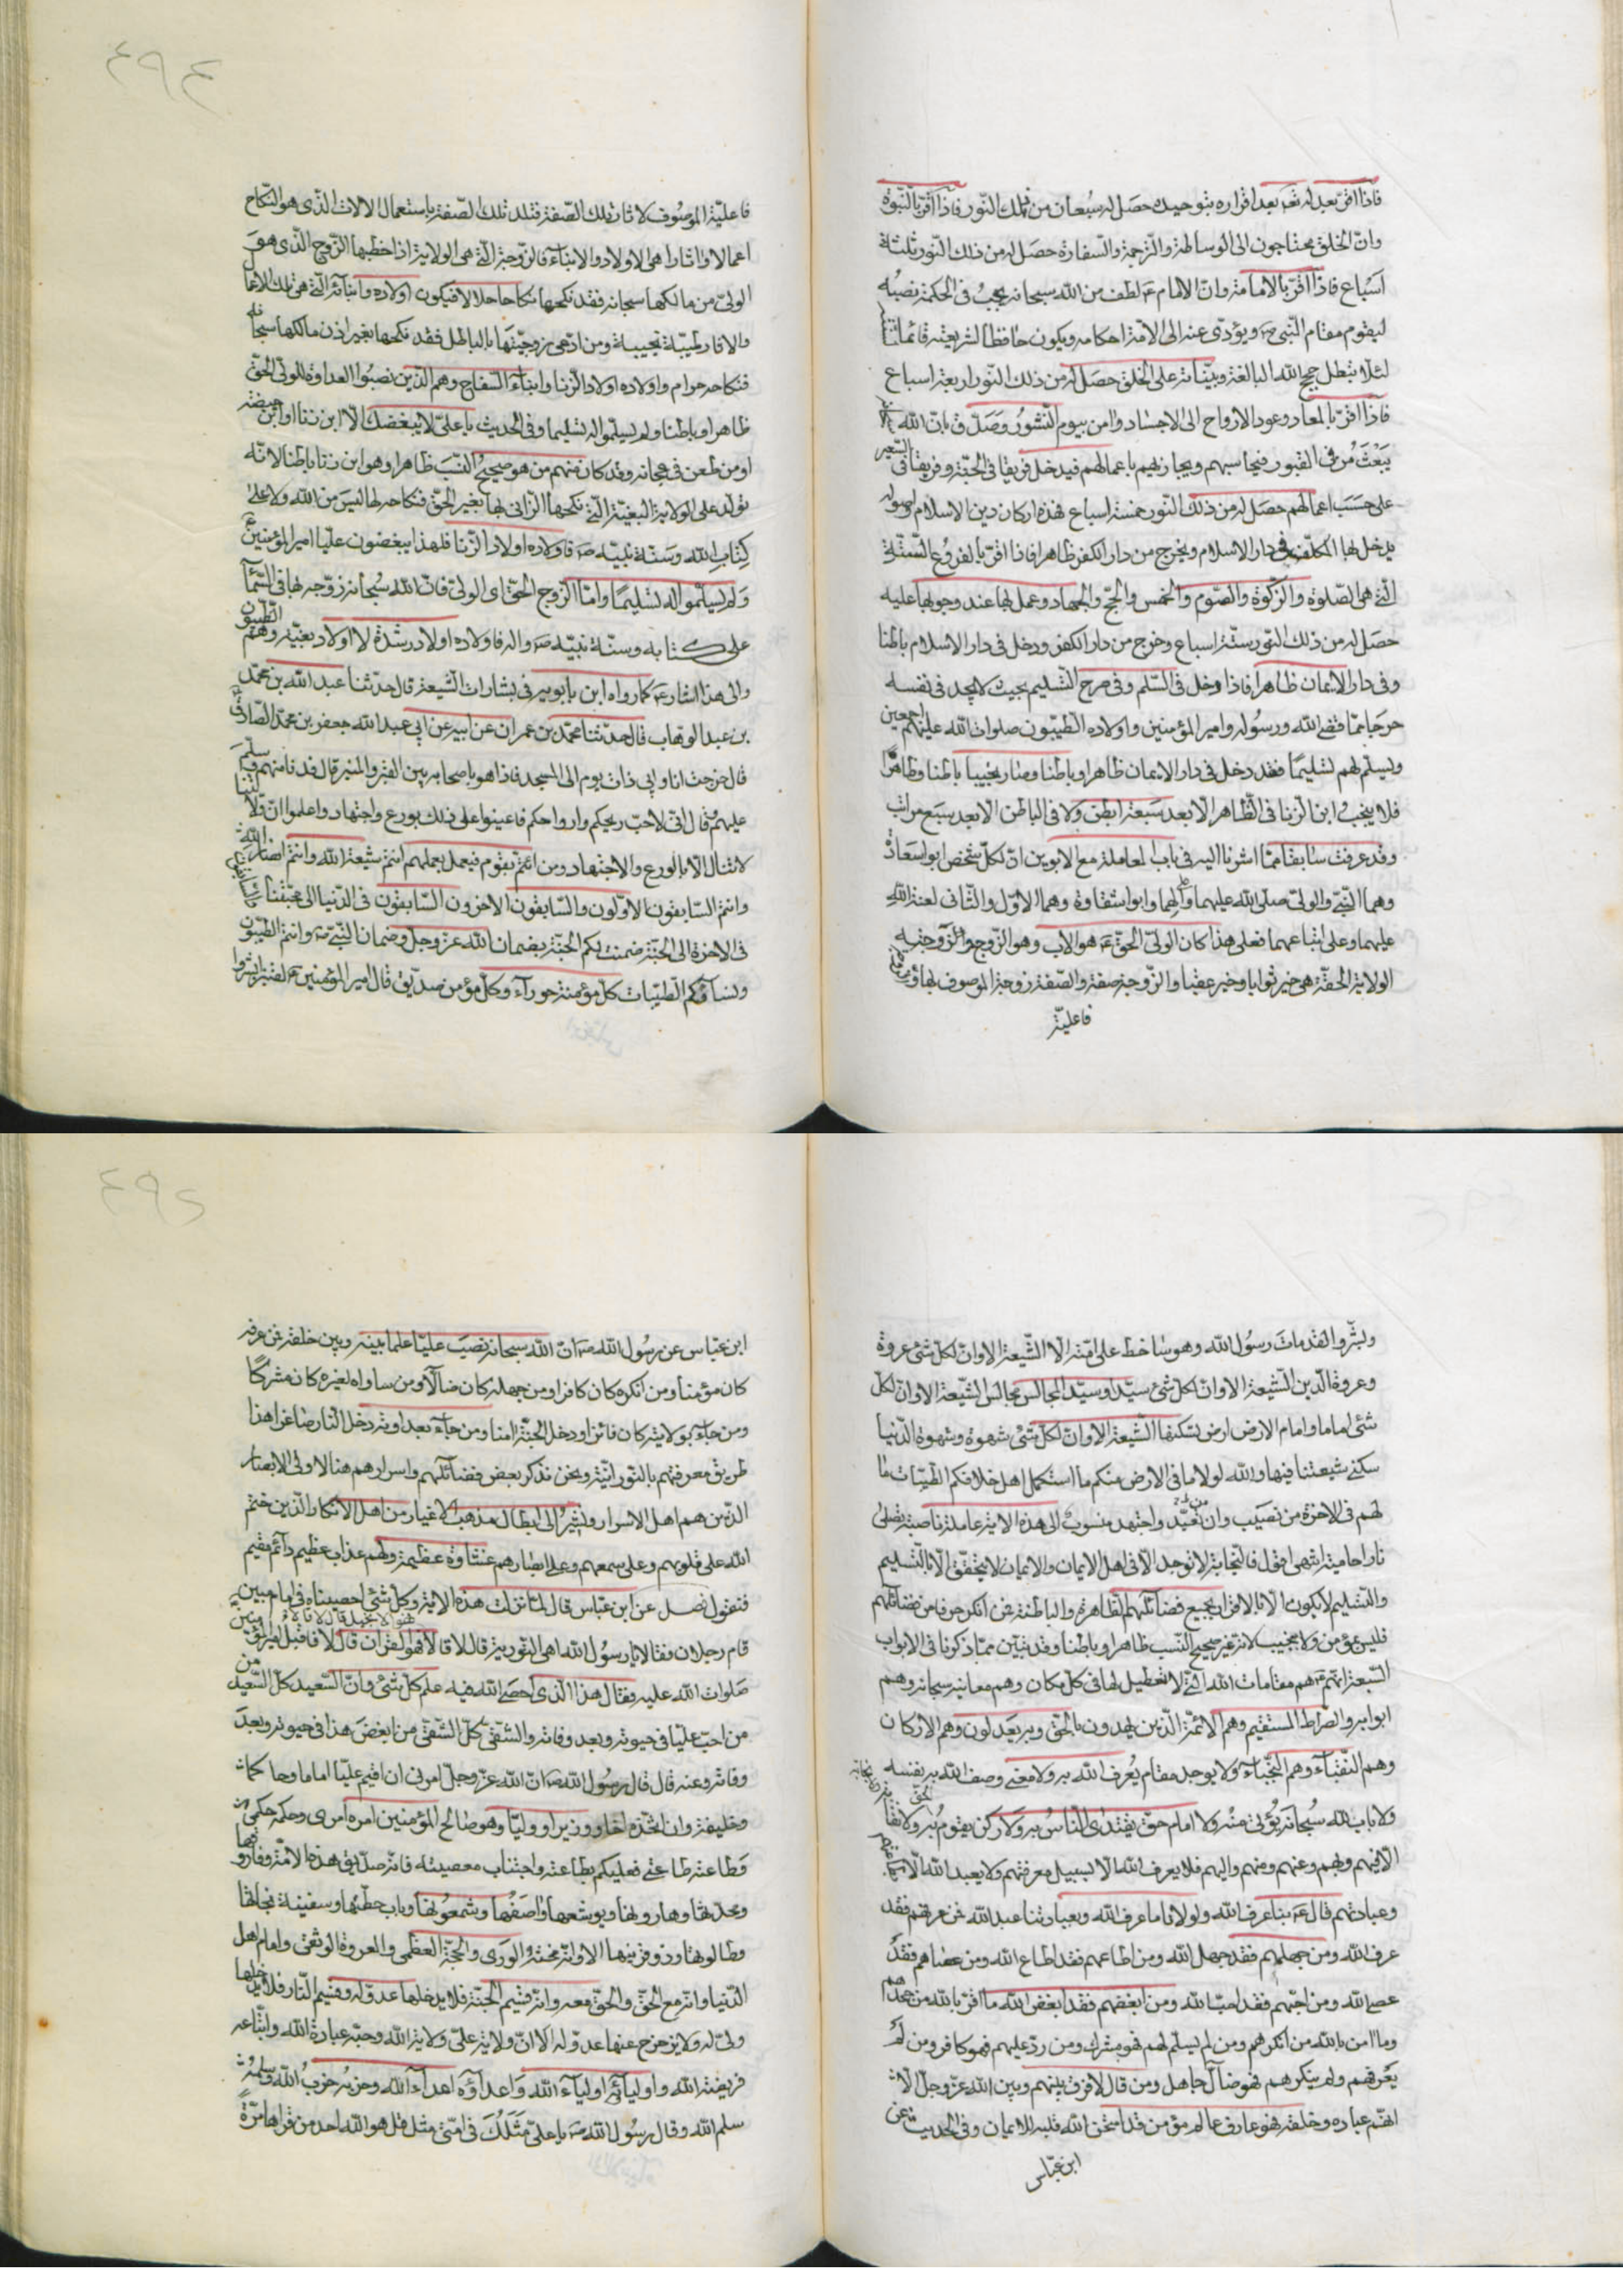 فاذا اقرّ بعدله تعـ بعد اقراره بتوحيده حصل له سبعان من ذلك النور فاذا اقرّ بالنبوّة
وانّ الخلق محتاجون الى الوساطة والترجمة والسفارة حصل له من ذلك النور ثلثة
اسباع فاذا اقرّ بالامامة وانّ الامام عـ لطف من الله سبحانه يجب فى الحكمة نصبه
ليقوم مقام النبى صـ ويؤدّى عنه الى الامّة احكامه ويكون حافظا لشريعته
لئلا تبطل حجج الله البالغة وبيّناته على الخلق حصل له من ذلك النور اربعة اسباع
فاذا اقرّ بالمعاد وعود الارواح الى الاجساد وامن بيوم النشور وصدّق بانّ الله
يبعث من فى القبور فيحاسبهم ويجازيهم باعمالهم فيدخل فريقا فى الجنّة وفريقا فى السّعير
على حسب اعمالهم حصل له من ذلك النور خمسة اسباع فهذه اركان دين الاسلام واصوله
يدخل بها المكلّف فى دار الاسلام ويخرج من دار الكفر ظاهرا فاذا اقرّ بالفروع الستّة
التى هى الصّلوة والزّكوة والصّوم والخمس والحجّ والجهاد وعمل بها عند وجوبها عليه
حصل له من ذلك النّور ستّة اسباع وخرج من دار الكفر ودخل فى دار الاسلام باطنا
وفى دار الايمان ظاهرا فاذا دخل فى السّلم وفى صرح التّسليم بحيث لا يجد فى نفسه
حرجا ممّا قضى الله ورسوله وامير المؤمنين واولاده الطّيّبون صلوات الله عليهم اجمعين
ويسلّم لهم تسليمًا فقد دخل فى دار الايمان ظاهرا وباطنا وصار نجيبا باطنا وظاهرًا
فلا ينجب ابن الزّنا فى الظّاهر الا بعد سبعة ابطن ولا فى الباطن الا بعد سبع مراتب
وقد عرفت سابقا ممّا اشرنا اليه فى باب المعاملة مع الابوين انّ لكلّ شخص ابوا سعادة
وهما النّبىّ والولىّ صلى الله عليهما والهما وابوا شقاوة وهما الاوّل والثّانى لعنة الله
عليهما وعلى اتباعهما فعلى هذا كان الولىّ الحقّ عـ هو الاب وهو الزّوج والزّوجة
الولاية الحقّة هى خير ثوابا وخير عقبا والزّوجة صفة والصّفة زوجة الموصوف بها
فاعليّة
فاعليّة الموصوف لاثار تلك الصّفة فتلد تلك الصّفة باستعمال الالات الذى هو النّكاح
اعمالا واثارا هى الاولاد والابناء فالزّوجة التى هى الولاية اذا خطبها الزّوج الّذى هو
الولىّ من مالكها سبحانه فقد نكحها نكاحا حلالا فيكون اولاده وابنائه الّتى هى تلك الاعمال
والاثار طيّبة نجيبة ومن ادّعى زوجيّتها بالباطل فقد نكحها بغير اذن مالكها سبحانه
فنكاحه حرام واولاده اولاد الزّنا وابناء السّفاح وهم الّذين نصبوا العداوة للولىّ الحقّ
ظاهرا وباطنا ولم يسلّموا له تسليما وفى الحديث يا علىّ لا يبغضك الّا ابن زنا او ابن حيضة
او من طعن فى عجانه وقد كان منهم من هو صحيح النّسب ظاهرا وهو ابن زنا باطنا لانّه
تولّد على الولاية البغيّة الّتى نكحها الزّانى بها بغير الحقّ فنكاحه لها ليس من الله ولا على
كتاب الله وسنّة نبيّه صـ فاولاده اولاد الزّنا فلهذا يبغضون عليّا امير المؤمنين عـ
ولم يسلّموا له تسليمًا وامّا الزّوج الحقّ اى الولىّ فانّ الله سبحانه زوّجه بها فى السّمآء
على كتابه وسنّة نبيّه صـ واله فاولاده اولاد رشدة لا اولاد بغيّة وهم الطّيّبون
والى هذا اشار عـ كما رواه ابن بابويه فى بشارات الشيعة قال حدّثنا عبد الله بن محمّد
بن عبد الوهّاب قال حدّثنا محمّد بن عمران عن ابيه عن ابى عبد الله جعفر بن محمّد الصّادق
قال خرجت انا وابى ذات يوم الى المسجد فاذا هو باصحابه بين القبر والمنبر قال فدنا منهم فسلّم
عليهم وقال انّى لاحبّ ريحكم وارواحكم فاعينوا على ذلك بورع واجتهاد واعلموا انّ ولايتنا
لا تنال الّا بالورع والاجتهاد ومن ائتمّ بقوم فيعمل بعملهم انتم شيعة الله وانتم انصار الله
وانتم السّابقون الاوّلون والسّابقون الاخرون السّابقون فى الدّنيا الى محبّتنا
فى الاخرة الى الجنّة ضمنت لكم الجنّة بضمان الله عزّ وجلّ وضمان النّبىّ صـ وانتم الطّيّبون
ونساؤكم الطّيّبات كلّ مؤمنة حورآء وكلّ مؤمن صدّيق قال امير المؤمنين عـ لقنبر ابشروا
وبشّروا لقد مات رسول الله وهو ساخط على امّته الّا الشّيعة الا وانّ لكلّ شئ عروة
وعروة الدّين الشّيعة الا وانّ لكلّ شئ سيّدا وسيّد المجالس مجالس الشّيعة الا وانّ لكلّ
شئ اماما وامام الارض ارض تسكنها الشّيعة الا وانّ لكلّ شئ شهوة وشهوة الدّنيا
سكنى شيعتنا فيها والله لولا ما فى الارض منكم ما استكمل اهل خلافكم الطيّبات ما
لهم فى الاخرة من نصيب وان تعبّد واجتهد منسوب الى هذه الاية عاملة ناصبة تصلى
نارا حامية انتهى اقول فالنّجابة لا توجد الّا فى اهل الايمان والايمان لا يتحقّق الّا بالتّسليم
والتّسليم لا يكون الّا بالاقرار بجميع فضآئلهم الظّاهرة والباطنة فمن انكر حرفا من فضآئلهم
فليس بمؤمن ولا بنجيب لانّه غير صحيح النّسب ظاهرا وباطنا وقد تبيّن ممّا ذكرنا فى الابواب
السّبعة انّهم عـ هم مقامات الله الّتى لا تعطيل لها فى كلّ مكان وهم معانيه سبحانه وهم
ابوابه والصّراط المستقيم وهم الائمّة الّذين يهدون بالحقّ وبه يعدلون وهم الاركان
وهم النّقبآء وهم النّجبآء ولا يوجد مقام يعرف الله به ولا معنى وصف الله به نفسه
ولا باب لله سبحانه يؤتى منه ولا امام حقّ يقتدى النّاس به ولا ركن يقوم به
الّا فيهم وبهم وعنهم ومنهم واليهم فلا يعرف الله الّا بسبيل معرفتهم ولا يعبد الله الّا
وعبادتهم قال عـ بنا عرف الله ولولانا ما عرف الله وبعبادتنا عبد الله فمن عرفهم فقد
عرف الله ومن جهلهم فقد جهل الله ومن اطاعهم فقد اطاع الله ومن عصاهم فقد
عصى الله ومن احبّهم فقد احبّ الله ومن ابغضهم فقد ابغض الله ما اقرّ بالله من جحدهم
وما امن بالله من انكرهم ومن لم يسلّم لهم فهو مشرك ومن ردّ عليهم فهو كافر ومن لم
يعرفهم ولم ينكرهم فهو ضآلّ جاهل ومن قال لا فرق بينهم وبين الله عزّ وجلّ الّا
انّهم عباده وخلقه فهو عارف عالم مؤمن قد امتحن الله قلبه للايمان وفى الحديث عن
ابن عبّاس
ابن عبّاس عن رسول الله صـ انّ الله سبحانه نصب عليّا علما بينه وبين خلقه فمن عرفه
كان مؤمنا ومن انكره كان كافرا ومن جهله كان ضالّا ومن ساواه بغيره كان مشركا
ومن جآء بولايته كان فائزا ودخل الجنّة امنا ومن جآء بعداوته دخل النّار صاغرا هذا
طريق معرفتهم بالنّورانيّة ونحن نذكر بعض فضآئلهم واسرارهم هنا لاولى الابصار
الذين هم اهل الاسرار ونشير الى ابطال مذهب الاغيار من اهل الانكار والّذين ختم
الله على قلوبهم وعلى سمعهم وعلى ابصارهم غشاوة عظيمة ولهم عذاب عظيم دآئم مقيم
فنقول فصل عن ابن عبّاس قال لمّا نزلت هذه الاية وكلّ شئ احصيناه فى امام مبين
قام رجلان فقالا يا رسول الله اهى التّورية قال لا قالا فهو القران قال لا فاقبل امير المؤمنين
فهو الانجيل قال لا قالا
صلوات الله عليه فقال هذا الّذى احصى الله فيه علم كلّ شئ وانّ السّعيد كلّ السّعيد من
من احبّ عليّا فى حيوته وبعد وفاته والشّقىّ كلّ الشّقىّ من ابغض هذا فى حيوته وبعد
وفاته وعنه قال قال رسول الله صـ انّ الله عزّ وجلّ امرنى ان اقيم عليّا اماما وحاكما
وخليفة وان اتّخذه اخا ووزيرا ووليّا وهو صالح المؤمنين امره امرى وحكمه حكمى
وطاعته طاعتى فعليكم بطاعته واجتناب معصيته فانّه صدّيق هذه الامّة وفاروقها
ومحدّثها وهارونها ويوشعها واصفها وشمعونها وباب حطّتها وسفينة نجاتها
وطالوتها وذو قرنيها الا وانّه محنة الورى والحجّة العظمى والعروة الوثقى وامام اهل
الدّنيا وانّه مع الحقّ والحقّ معه وانّه قسيم الجنّة فلا يدخلها عدوّ له وقسيم النّار فلا يدخلها
ولىّ له ولا يزحزح عنها عدوّ له الا انّ ولاية علىّ ولاية الله وحبّه عبادة الله واتّباعه
فريضة الله واوليآئه اوليآء الله واعدآؤه اعدآء الله وحربه حرب الله وسلمه
سلم الله وقال رسول الله صـ يا علىّ مثلك فى امّتى مثل قل هو الله احد من قراها مرّة